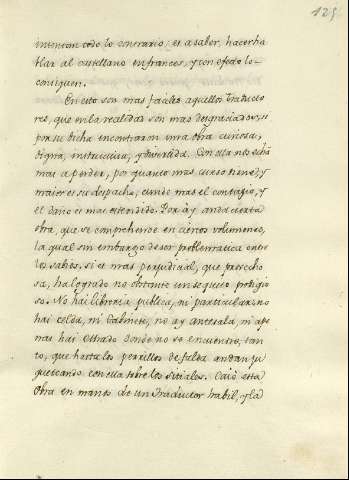 125
intentan todo lo contrario; es a saber, hacer ha
blar al castellano en frances, y con efecto lo
consiguen.
En esto son mas faciles aquellos traducto
res, que en la realidad son mas desgraciados, si
por su dicha encontraron una obra curiosa,
digna, instructiva, y divertida. Con ella nos echan
mas a perder, por quanto mas curso tiene, y
maior es su despacho, cunde mas el contagio, y
el daño es mas estendido. Por ày anda cierta
obra, que se comprehende en ciertos volumenes,
la qual sin embargo de ser problematica entre
los sabios, si es mas perjudicial, que provecho
sa, ha logrado no obstante un sequito prodigio
so. No hai libreria publica, ni particular; no
hai celda, ni Gabinete, no ay antesala, ni ape
nas hai estrado donde no se encuentre, tan
to, que hasta los perrillos de falda andan ju
gueteando con ella sobre los sitiales. Caiò esta
obra en manos de un traductor habil, y lad